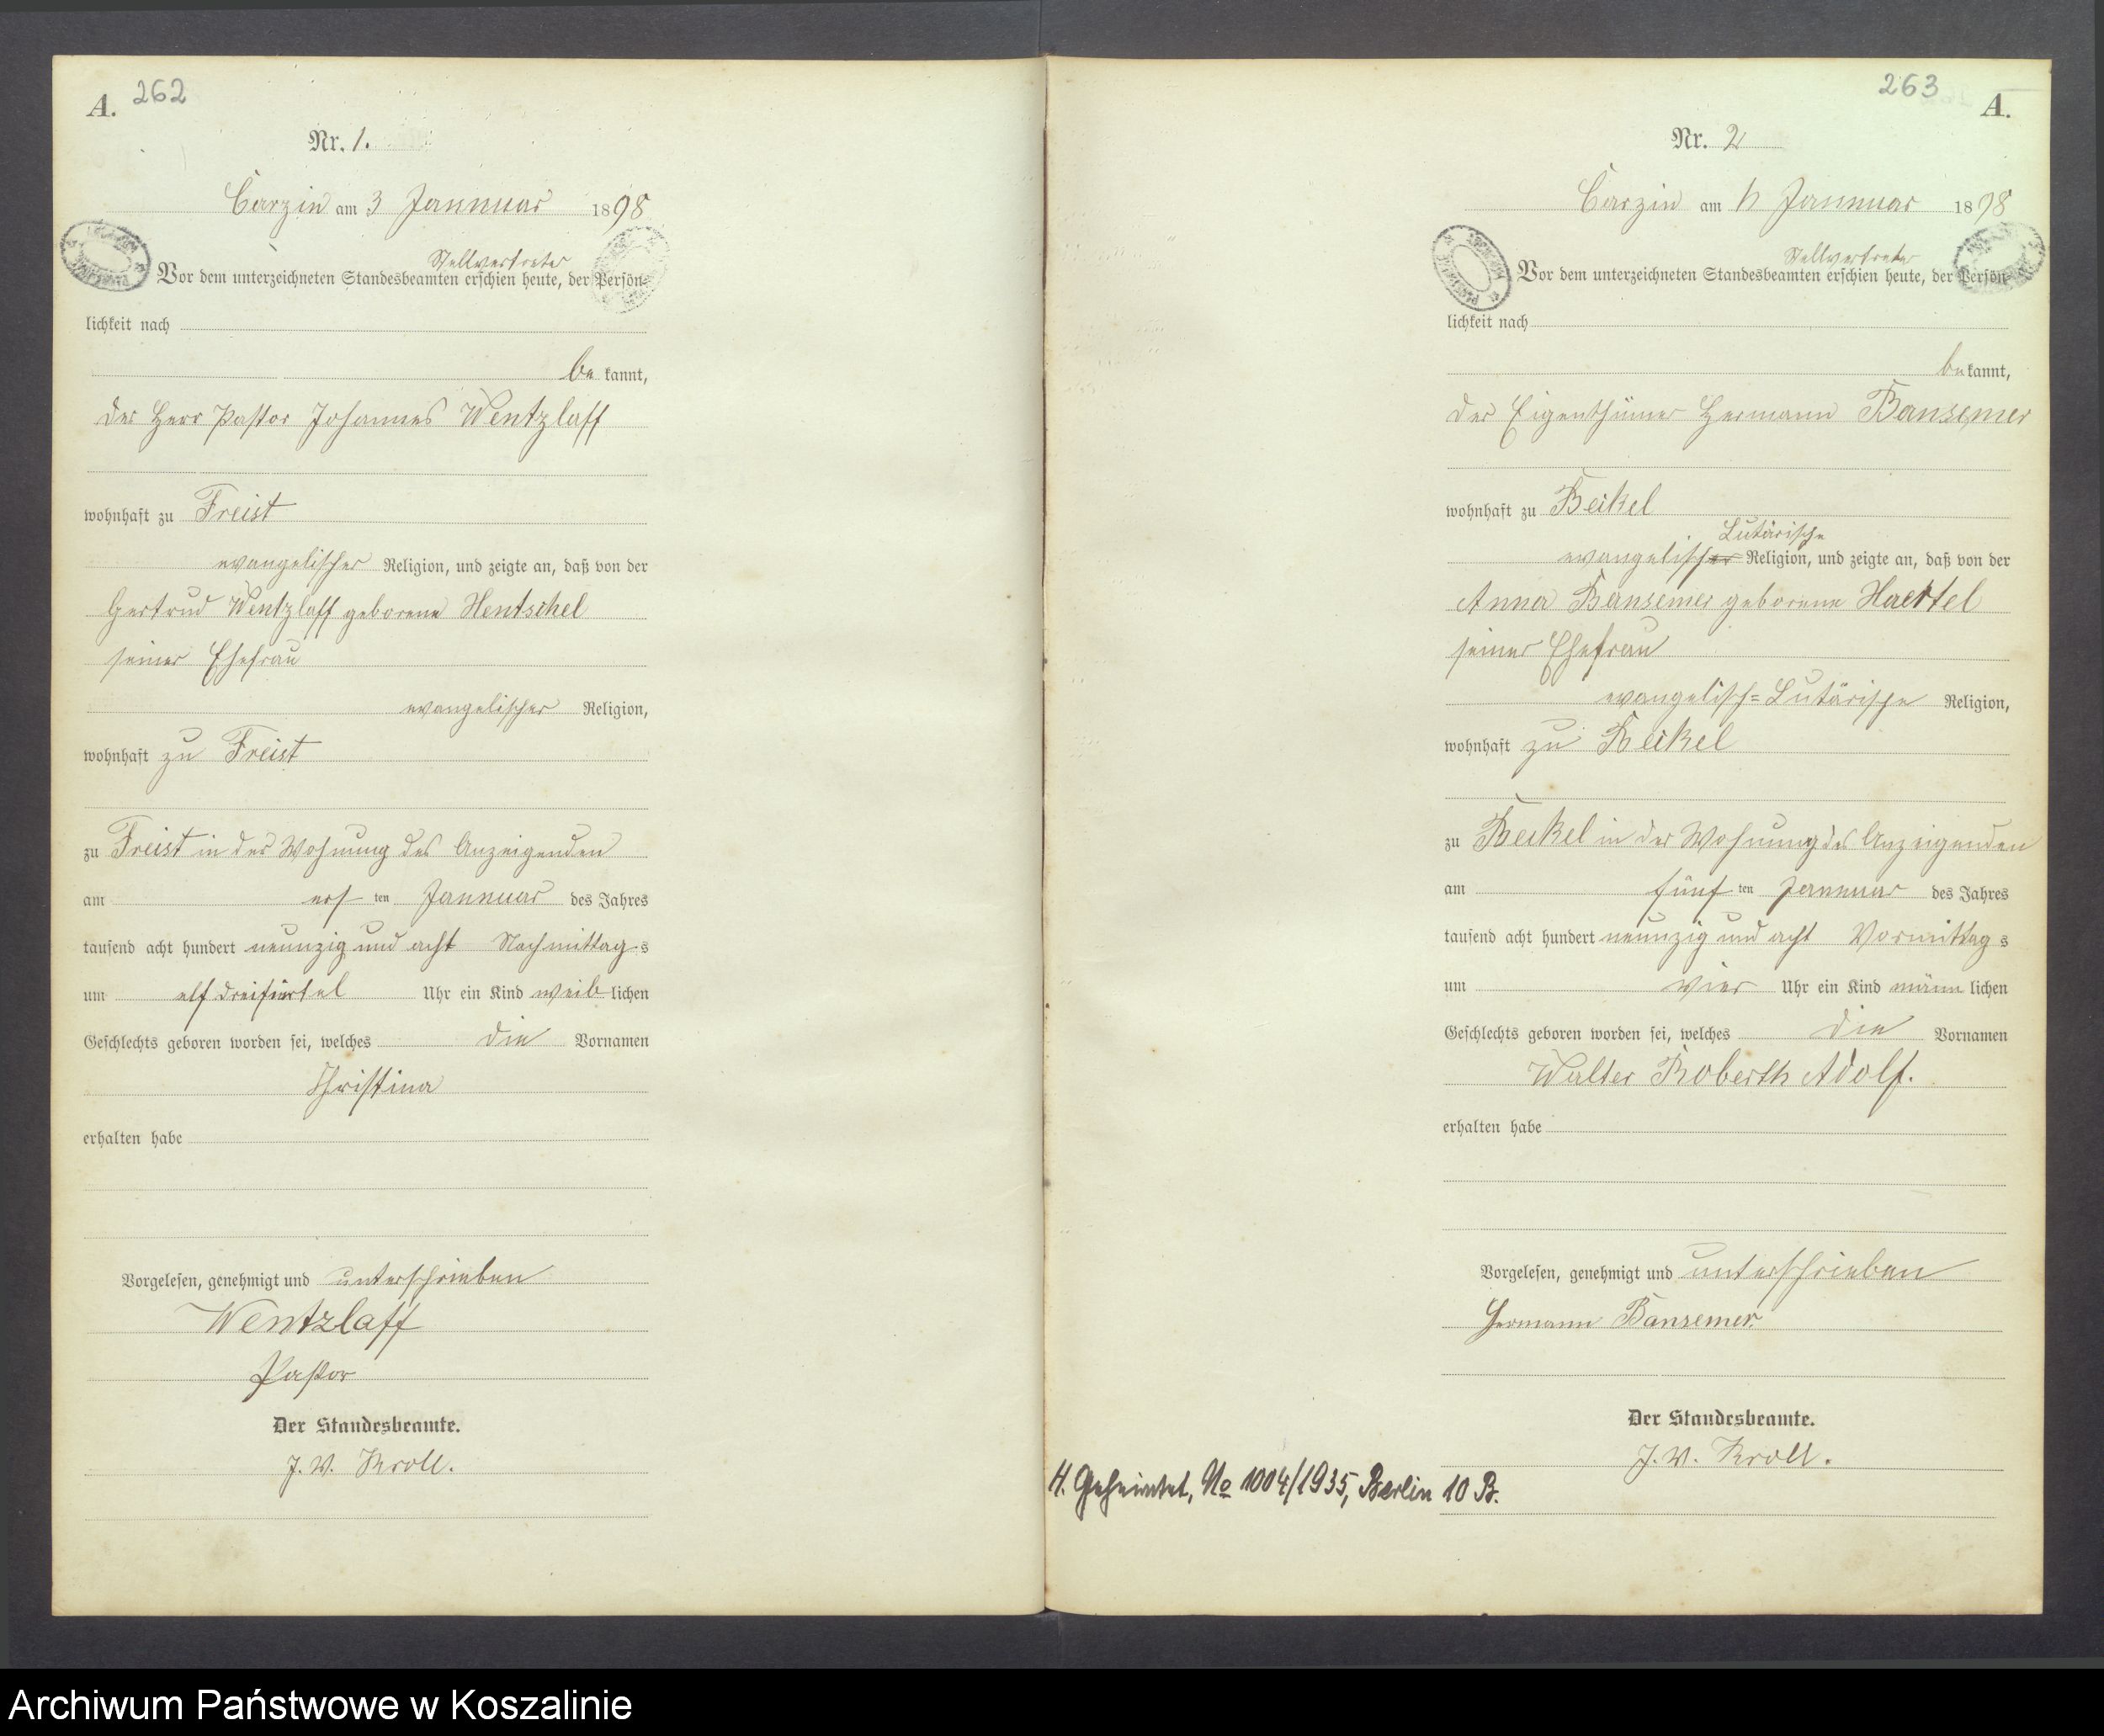 262
A.
Nr. 1.
Carzin am 3 Jannuar 1898
Stellvertreter
Vor dem unterzeichneten Standesbeamten erschien heute, der Persön-
lichkeit nach
be kannt,
der Herr Pastor Johannes Wentzlaff
wohnhaft zu Freist
evangelischer Religion, und zeigte an, daß von der
Gertrud Wentzlaff geborene Hentschel
seiner Ehefrau
evangelischer Religion,
wohnhaft zu Freist
zu Freist in der Wohnung des Anzeigenden
am ers ten Jannuar des Jahres
tausend acht hundert neunzig und acht Nachmittag s
um elf dreifiertel Uhr ein Kind weib lichen
Geschlechts geboren worden sei, welches die Vornamen
Christina
erhalten habe
Vorgelesen, genehmigt und unterschrieben
Wentzlaff
Pastor
Der Standesbeamte.
J. V. Kroll.
263
A.
Nr. 2
Carzin am Jannuar 1898
Stellvertreter
Vor dem unterzeichneten Standesbeamten erschien heute, der Persön-
lichkeit nach
be kannt,
der Eigenthümer Hermann Bansemer
wohnhaft zu Beikel
Lutärische
evangelischer Religion, und zeigte an, daß von der
Anna Bansemer geborene Haertel
seiner Ehefrau
evangelisch=Lutärische Religion,
wohnhaft zu Beikel
zu Beikel in der Wohnung des Anzeigenden
am fünf ten Jannuar des Jahres
tausend acht hundert neunzig und acht Vormittag s
um vier Uhr ein Kind männ lichen
Geschlechts geboren worden sei, welches die Vornamen
Walter Roberth Adolf.
erhalten habe
Vorgelesen, genehmigt und unterschrieben
Hermann Bansemer.
Der Standesbeamte.
J. V. Kroll.
H. Geheiratet, No 1004/1935, Berlin 10 B.
Archiwum Państwowe w Koszalinie